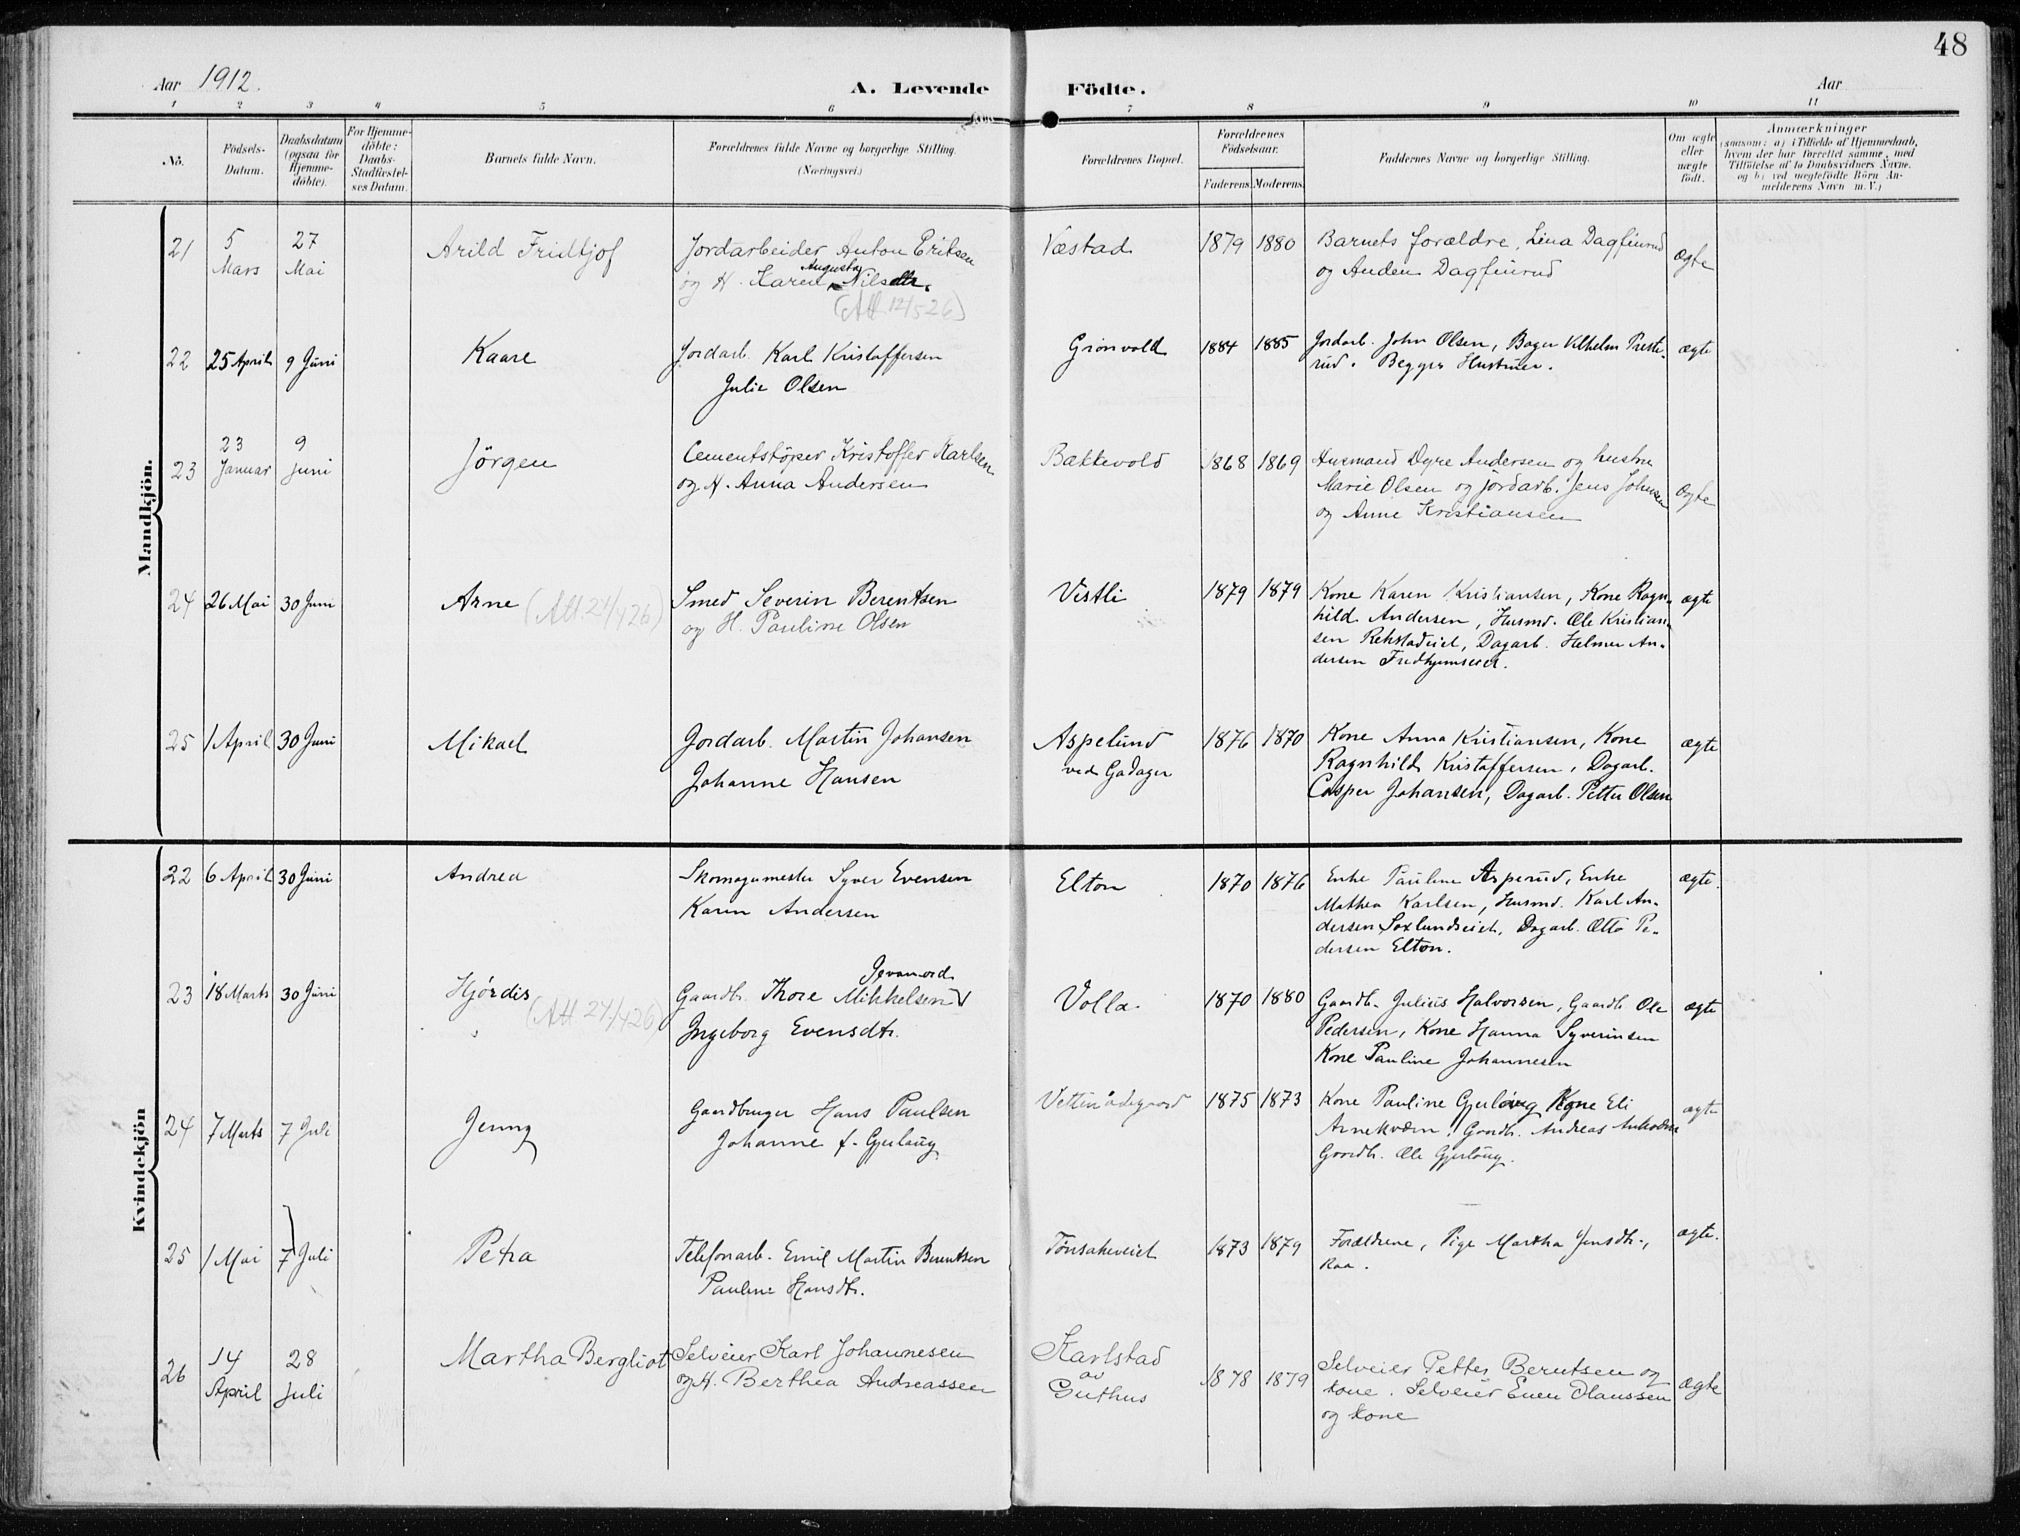 48
Aar 1912.
A. Levende Födte.
Aar
1 2 3 4 5 6 7 8 9 10 11
No.
Födsels-
Datum.
Daabsdatum
(ogsaa for
Hjemme-
döbte).
For Hjemme-
döbte:
Daabs-
Stadfæstel-
ses Datum.
Barnets fulde Navn.
Forældrenes fulde Navne og borgerlige Stilling.
(Næringsvei.)
Forældrenes Bopæl.
Forældrenes
Födselsaar.
Faderens. Moderens.
Faddernes Navne og borgerlige Stilling.
Om ægte
eller
uægte
födt.
Anmærkninger
(saasom: a) i Tilfælde af Hjemmedaab,
hvem der har forrettet samme, med
Tilföielse af to Daabsvidners Navne.
og b) ved uægtefödte Börn An-
melderens Navn m. V.)
Mandkjön.
21
5
Mars
27
Mai
Arild Fridtjof
Jordarbeider Anton Eriksen
Augusta
og H. Karen Nilsdtr.
(Att 12/526)
Væstad
1879 1880
Barnets forældre, Lina Dagfinrud
og Anden Dagfinrud
ægte
22 25 April 9 Juni
Kaare
Jordarb. Karl Kristoffersen
Julie Olsen
Grönvold
1884 1885
Jordarb. John Olsen, Bager Vilhelm Preste-
rud. Begges Hustruer.
ægte
23
23
Januar
9
Juni
Jörgen
Cementstöper Kristoffer Karlsen
og H. Anna Andersen
Bakkevold
1868 1869
Husmand Dyre Andersen og hustru
Marie Olsen og jordarb. Jens Johnsen
og Anne Kristiansen
Ægte
24 26 Mai 30 Juni
Arne (Att. 24/426)
Smed Severin Berentsen
og H. Pauline Olsen
Vistli
1879 1879
Kone Karen Kristiansen, Kone Ragn-
hild Andersen, Husmd. Ole Kristian-
sen Rekstadeiet, Dagarb. Helmer An-
dersen
ægte
25 1 April 30 Juni
Mikael
Jordarb. Martin Johansen
Johanne Hansen
Aspelund
ved Gadager
1876 1870
Kone Anna Kristiansen, Kone
Ragnhild Kristoffersen, Dagarb.
Casper Johansen, Dagarb. Petter Olsen
ægte
Kvindekjön
22 6 April 30 Juni
Andrea
Skomagermester Syver Evensen
Karen Andersen
Elton
1870 1876
Enke Pauline Asperud, Enke
Mathea Karlsen, Husmd. Karl An-
dersen Saxlundseiet, Dagarb. Otto Pe-
dersen Elton.
ægte.
23 18 Marts 30 Juni
Hjördis
(Att 24/426)
Gaardb. Thore Mikkelsen
Ingeborg Evensdtr.
Volla
1870 1880
Gaardb. Julius Halvorsen, Gaardb Ole
Pedersen, Kone Hanna Syverinsen
Kone Pauline Johannesen
ægte
24 7 Marts 7 Juli
Jenny
Gaardbruger Hans Paulsen
Johanne f. Gjerlaug
1875 1873
Kone Pauline Gjerlaug Kone Eli
Arnekværn, Gaardb. Andreas
Gaardb. Ole Gjerlaug.
ægte
25 1 Mai 7 Juli
Petra
Telefonarb. Emil Martin Berntsen
Pauline Hansdtr.
Tönsakereiet
1873 1879
Forældrene, Pige Martha Jensdtr.,
Raa.
ægte.
26
14
April
28
Juli
Martha Bergliot
Selveier Karl Johannesen
og H. Berthea Andreassen
Karlstad
av
Guthus
1878 1879
Selveier Petter Berntsen og
kone. Selveier Even Olaussen
og kone
Ægte